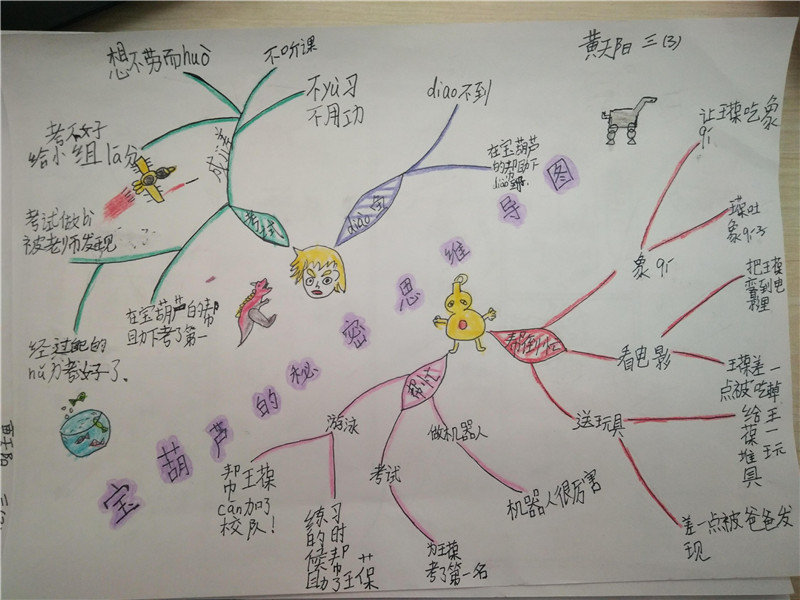 黄天阳 三(3)
宝葫芦的秘密思维导图
想不劳而huò
不听课
不yù习
不用功
考不好
给小组la分
考试做bì
被老师发现
经过自己的
nǔ力考好了.
在宝葫芦的帮
助下考了第一
考试
diào鱼
diào不到
在宝葫芦
的帮助下
帮倒忙
象qí
让王葆吃象
qí
王葆吐
象qí子
看电影
把王葆
影里
王葆差一
点被吃掉
送玩具
给王
葆一
堆玩
具
差一点被爸爸发
现
帮忙
游泳
帮王葆
cān加了
校队!
练习
的时
候帮
助了王葆
考试
为王葆
考了第一名
做机器人
机器人很厉害